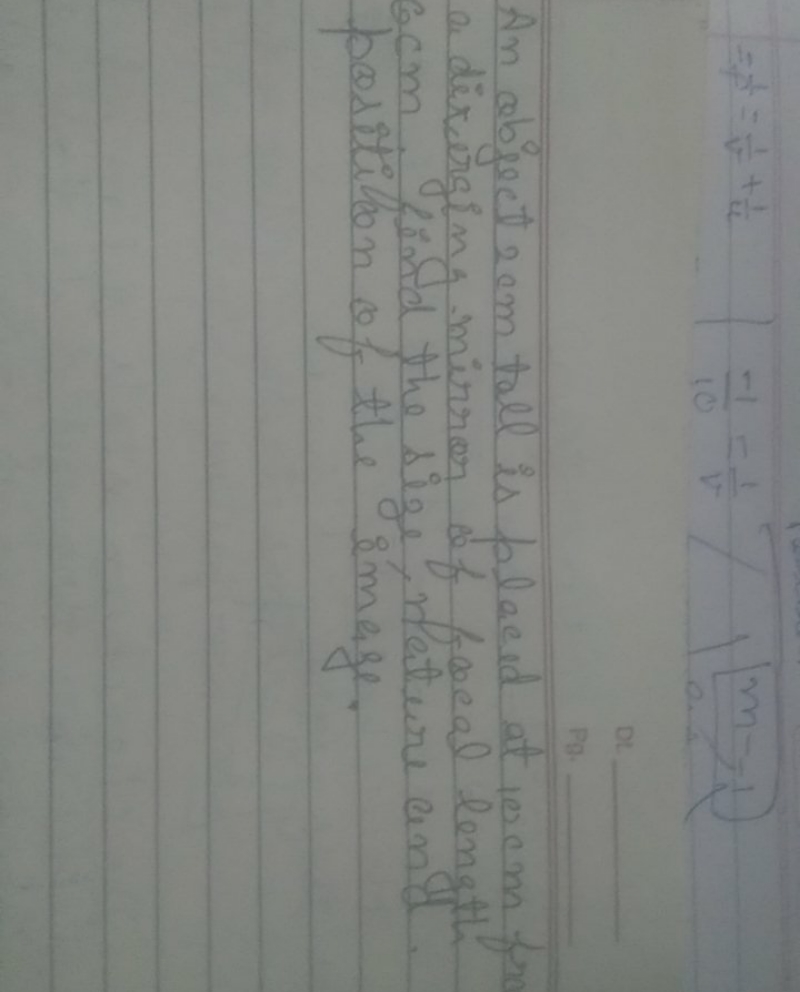 = 1/f = 1/v + 1/u
-1/10 = 1/v
m = -1
Dt.
Pg.
An object 2cm tall is placed at 12cm fro
a diverging mirror of focal length
6cm, find the size, nature and
position of the image.